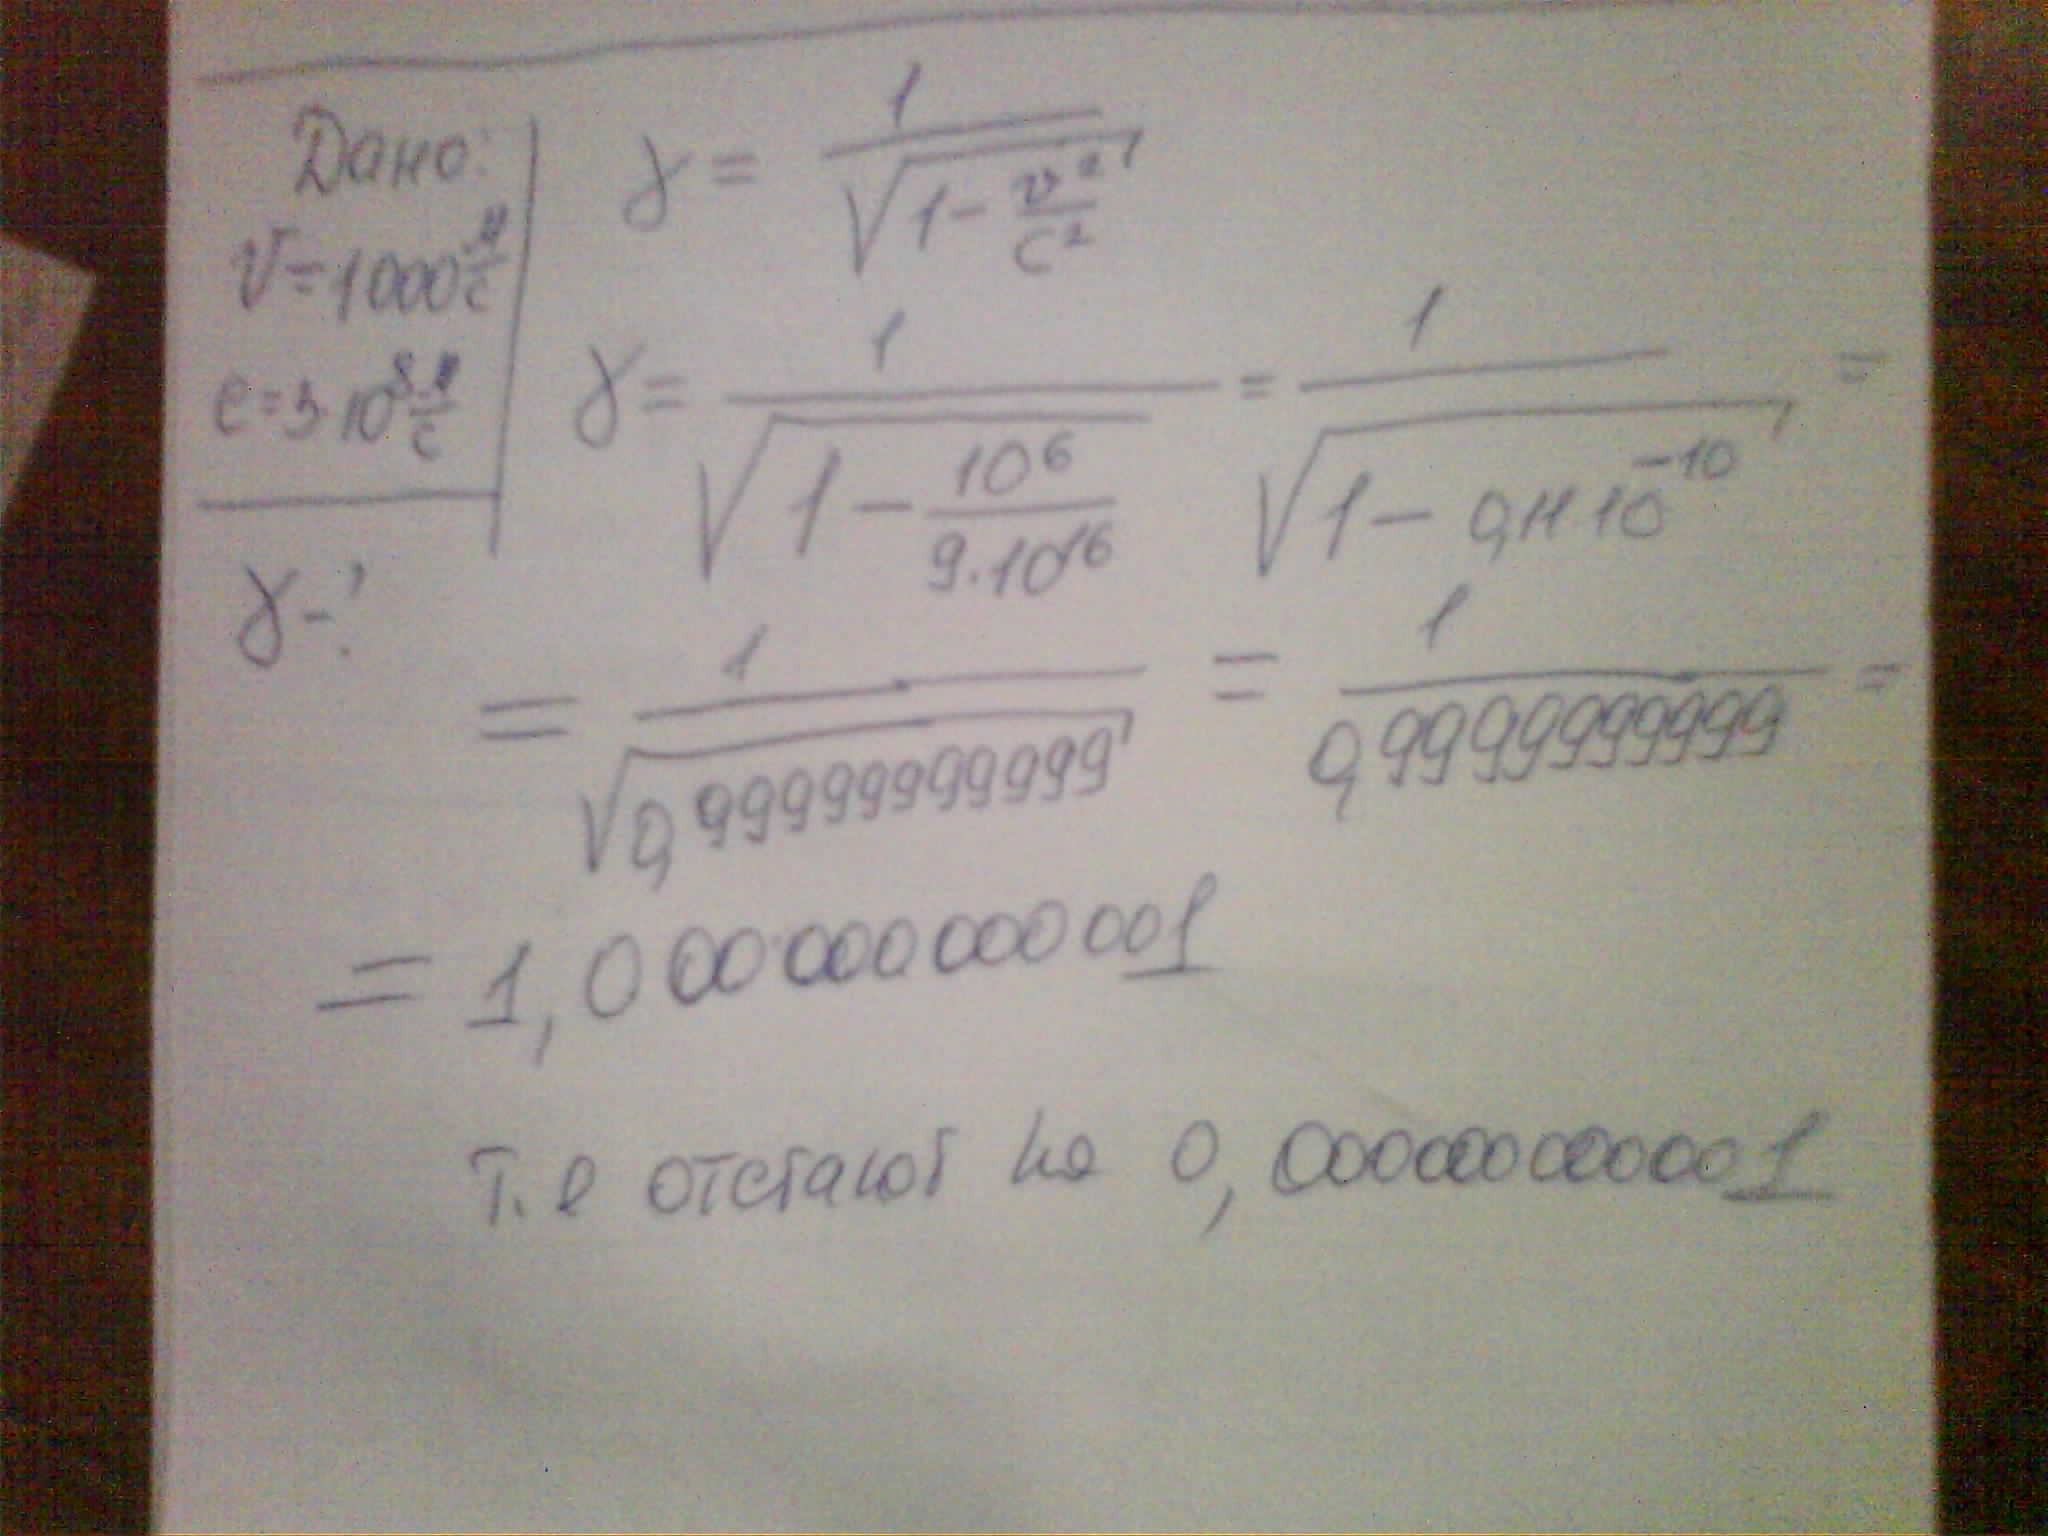 Дано:
V = 1000 м/с
c = 3·10⁸ м/с
γ - ?
γ = 1 / √(1 - v²/c²)
γ = 1 / √(1 - 10⁶/(9·10¹⁶)) = 1 / √(1 - 0,11·10⁻¹⁰) =
= 1 / √0,99999999999 = 1 / 0,99999999999 =
= 1,000000000001
т.е отстают на 0,000000000001